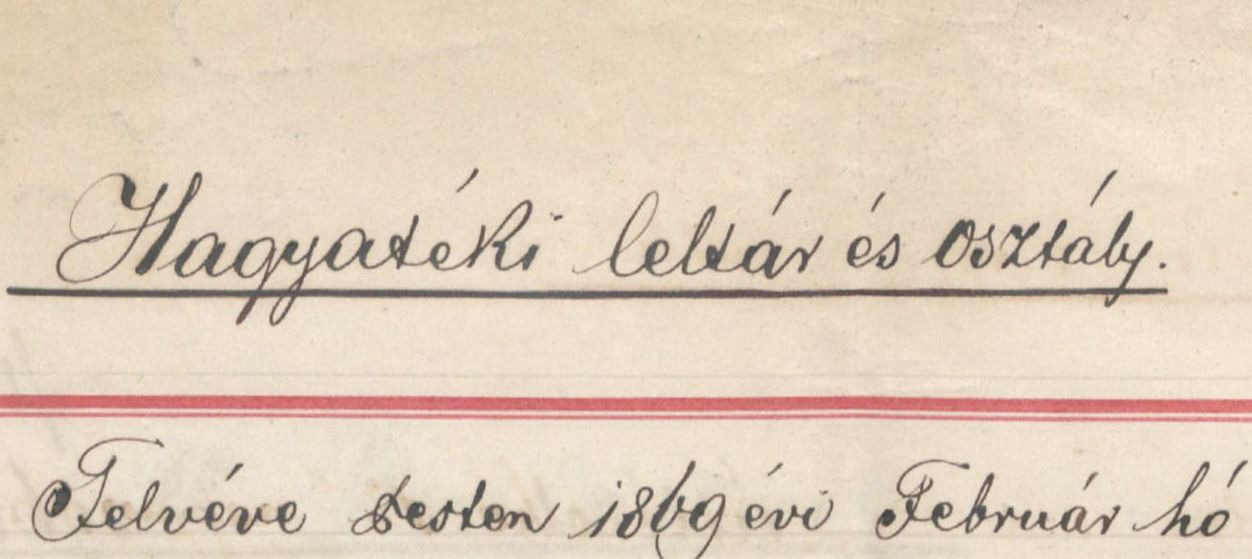 Hagyatéki leltár és osztály.
Felvéve Pesten 1869 évi Február hó